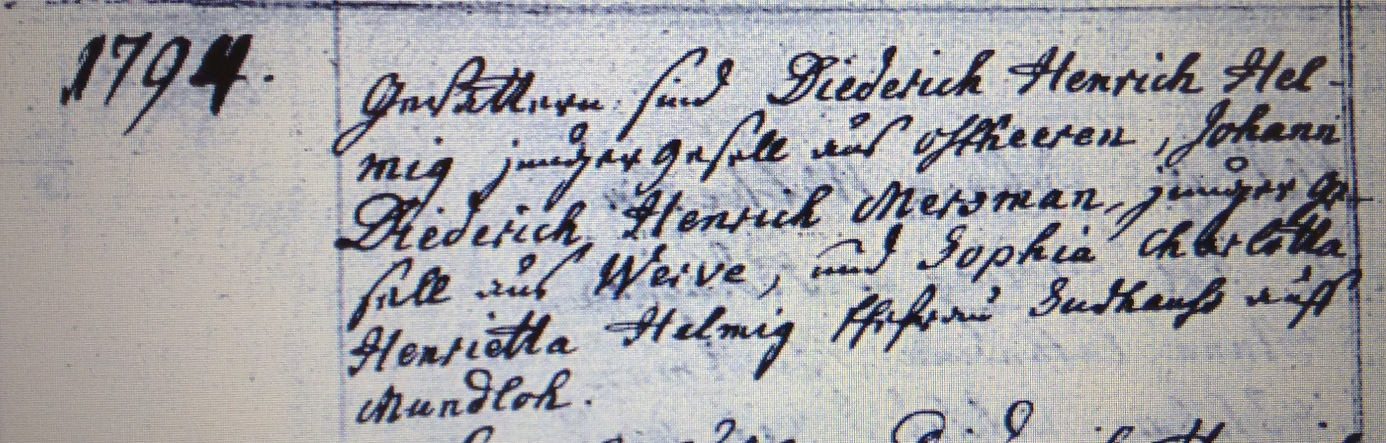 1794.
Gevattern sind Diederich Henrich Hel-
mig junger gesell aus ostheeren, Johann
Diederich Henrich Mersman, junger Ge-
sell aus Werve, und Sophia Charlotta
Henrietta Helmig Ehefrau Sudhauß auff
Mundloh.